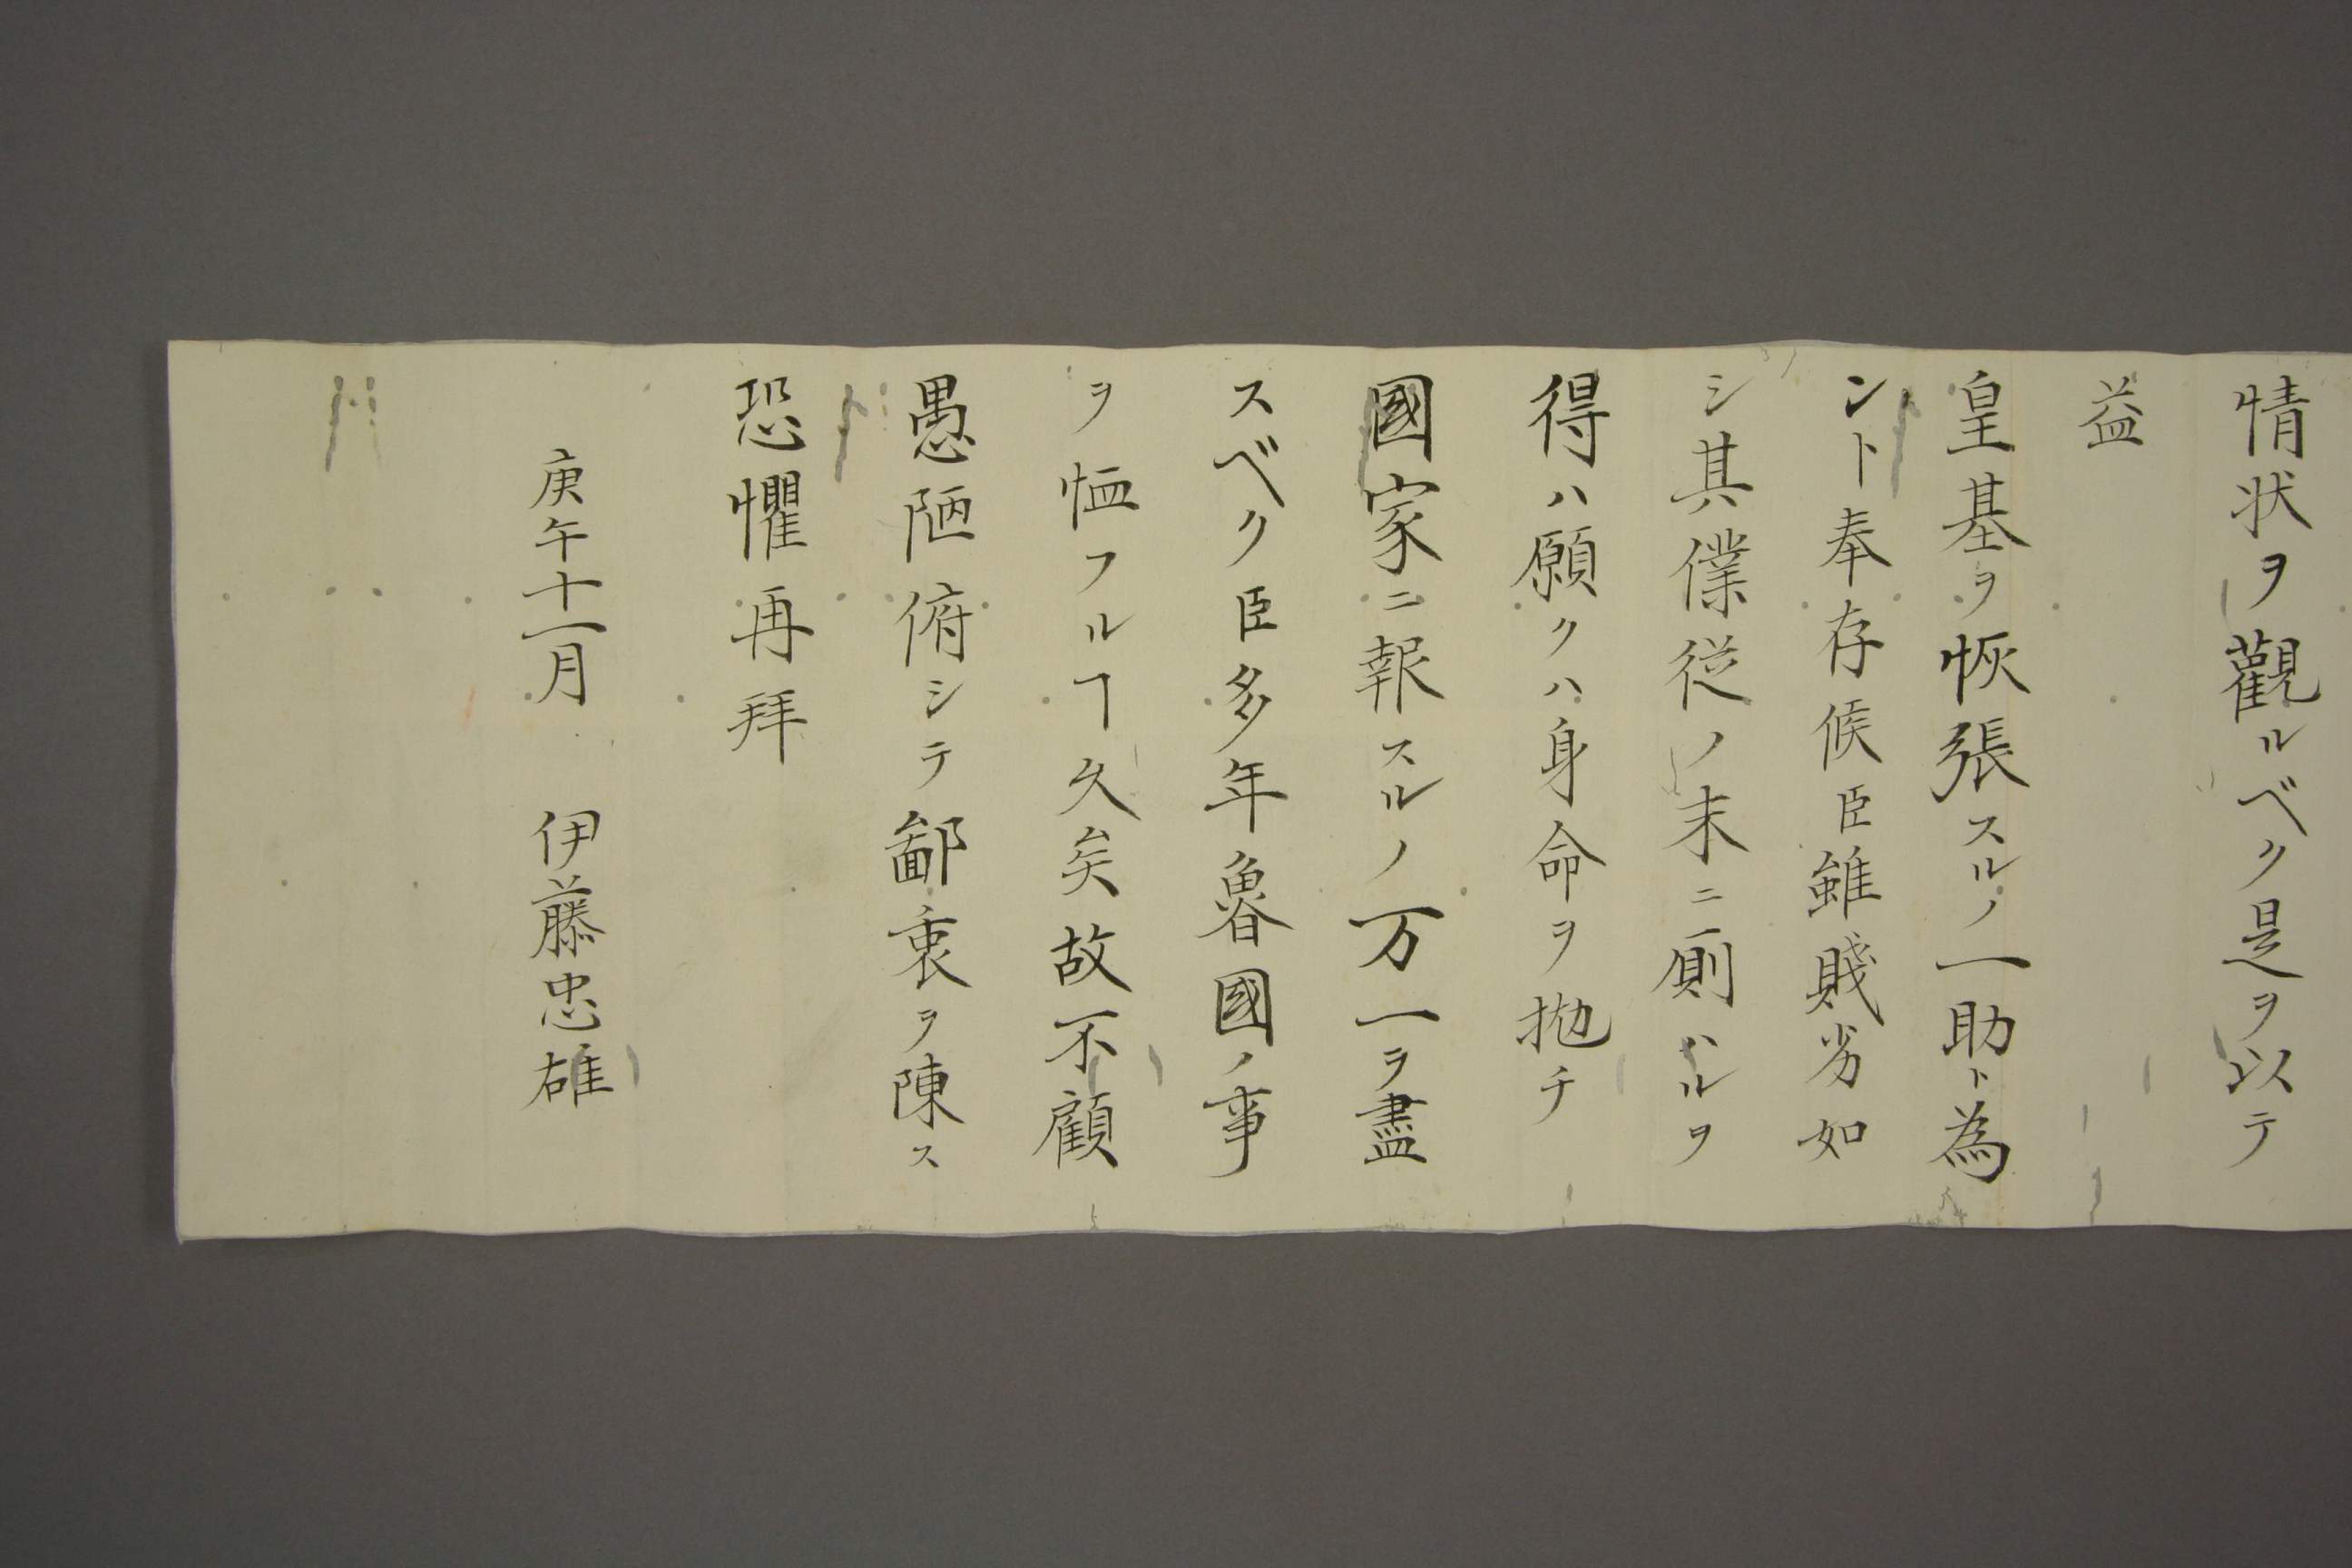 情状ヲ觀ルベク是ヲ以テ
益
皇基ヲ恢張スルノ一助ト為
ント奉存候臣雖賤劣如
シ其僕従ノ末ニ厠ハルヲ
得ハ願クハ身命ヲ抛チ
國家ニ報スルノ万一ヲ盡
スベク臣多年魯國ノ事
ヲ恤フルヿ久矣故不顧
愚陋俯シテ鄙衷ヲ陳ス
恐懼再拜
庚午十一月 伊藤忠雄